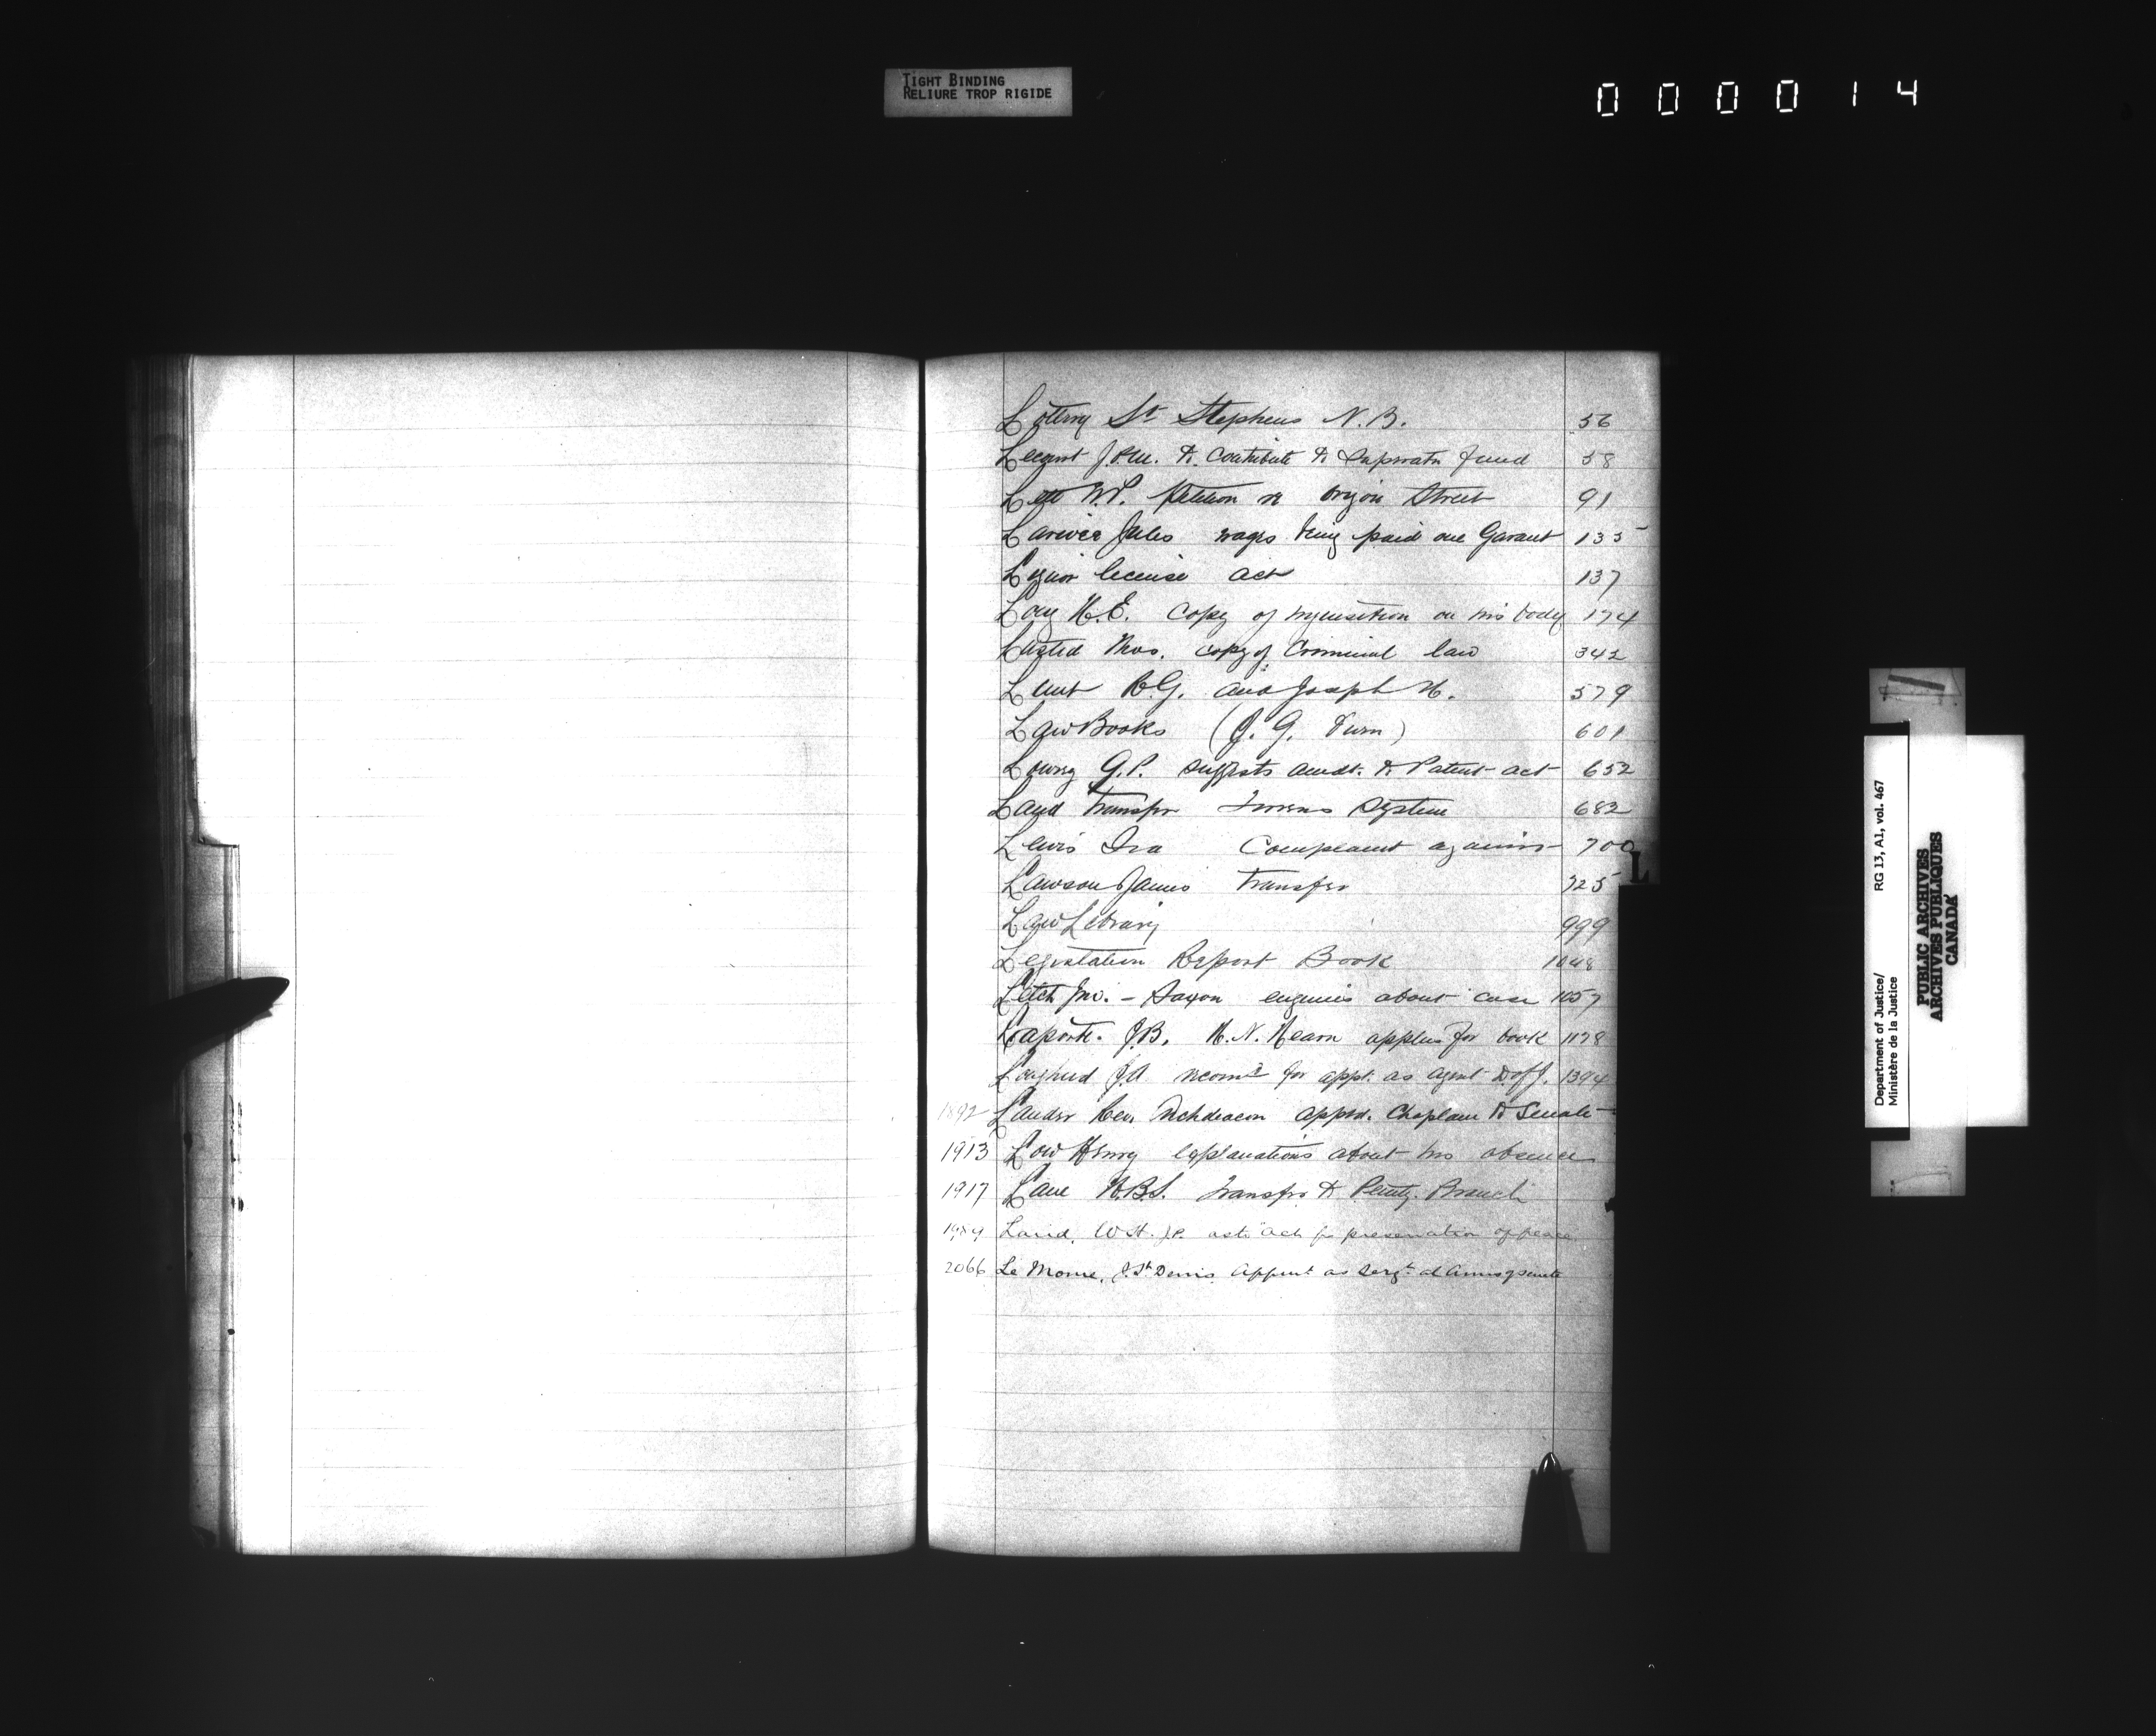 TIGHT BINDING
RELIURE TROP RIGIDE
000014
Lottery St Stephens N.B. 56
J.P.M. to contribute to Superatn fund 58
Lett W.P. Petition re Street 91
Lariviere Jules wages being paid one Garant 135
Liquor license act 137
Lay H.E. copy of inquisition on his body 174
Lusted Thos. copy of Criminal law 342
Lunt R.G. and Joseph H. 579
Law Books (J.G. ) 601
Lowry G.P. suggests amdt. to Patent act 652
Land Transfer Torrens System 682
Lewis Ira Complaint against 700
L
Lawson James Transfer 725
Law Library 999
Legislation Report Book 1048
Leitch Jno. - Saxon enquires about case 1057
Laporte. J.B. H.N. Hearn applies for book 1178
Lougheed J.A recomd for appt. as agent D of J. 1394
1892 Lauder Rev. Archdeacon appnd. Chaplain to Senate
1913 Low Henry Explanations about his absence
1917 Lane H.B.S. Transfer to Penty. Branch
Laird, W H. J.P. asks Act for preservation of peace
2066 Le Moine, J. St Denis. Appmt as Sergt at Arms Senate
Department of Justice/
Ministère de la Justice
RG 13, A1, vol. 467
PUBLIC ARCHIVES
ARCHIVES PUBLIQUES
CANADA